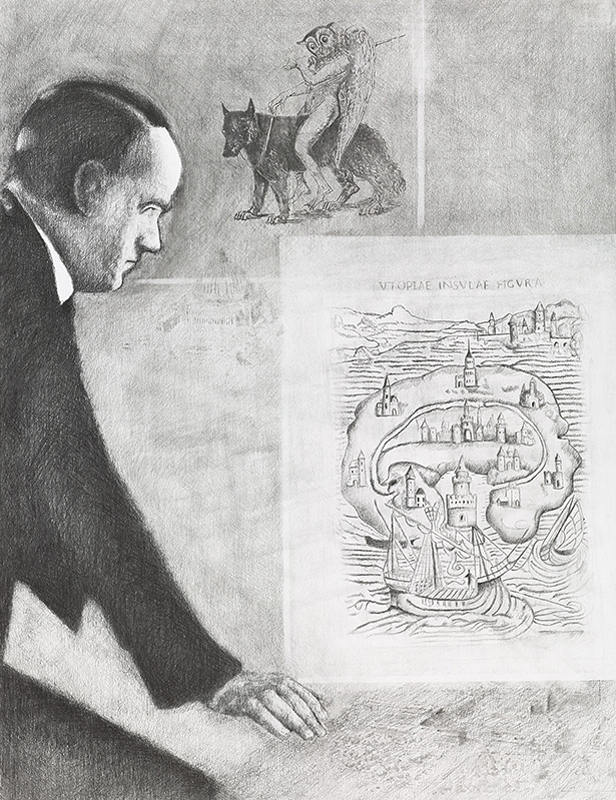 VTOPIAE INSVLAE FIGVRA